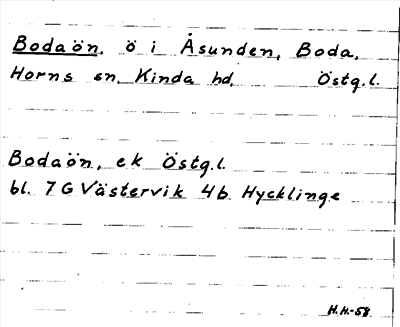 Bodaön, ö i Åsunden, Boda,
Horns sn. Kinda hd. Östg.l.
Bodaön, ek Östg.l.
bl. 7G Västervik 4b Hycklinge
H.H.-58